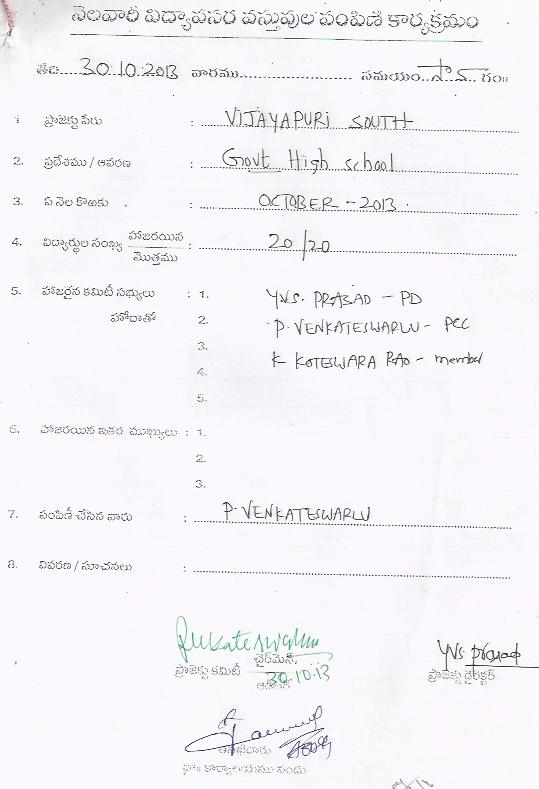 నెలవారీ విద్యావసర వస్తువుల పంపిణీ కార్యక్రమం
తేది....30.10.2013 వారము.................... సమయం..సా॥.. గం॥
1 ప్రాజెక్టు పేరు : VIJAYAPURI SOUTH
2. ప్రదేశము / ఆవరణ : Govt High school
3. ఏ నెల కొఱకు : OCTOBER - 2013.
4. విద్యార్థుల సంఖ్య హాజరయిన / మొత్తము : 20/20
5. హాజరైన కమిటీ సభ్యులు : 1. YVS. PRASAD - PD
హోదాతో 2. P. VENKATESWARLU - PCC
3. K KOTESWARA RAO - member
4.
5.
6. హాజరయిన ఇతర ముఖ్యులు : 1.
2.
3.
7. పంపిణీ చేసిన వారు : P. VENKATESWARLU
8. వివరణ / సూచనలు :
చైర్‌మెన్,
ప్రాజెక్టు కమిటీ 30.10.13
YVS. prasad
ప్రాజెక్టు డైరెక్టర్
కార్యాలయము నందు